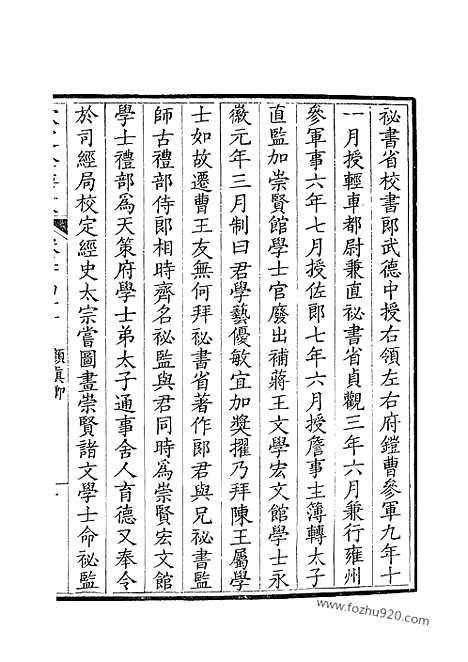 祕書省校書郞武德中授右領左右府鎧曹參軍九年十
一月授輕車都尉兼直祕書省貞觀三年六月兼行雍州
參軍事六年七月授佐郞七年六月授詹事主簿轉太子
直監加崇賢館學士官廢出補蔣王文學宏文館學士永
徽元年三月制曰君學藝優敏宜加奬擢乃拜陳王屬學
士如故遷曹王友無何拜祕書省著作郞君與兄祕書監
師古禮部侍郞相時齊名祕監與君同時爲崇賢宏文館
學士禮部爲天策府學士弟太子通事舍人育德又奉令
於司經局校定經史太宗嘗圖畫崇賢諸文學士命祕監
顏眞卿
www.fozhu920.com